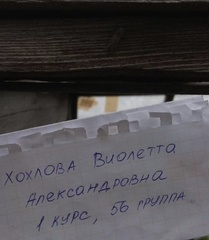 Хохлова Виолетта
Александровна
1 курс, 56 группа